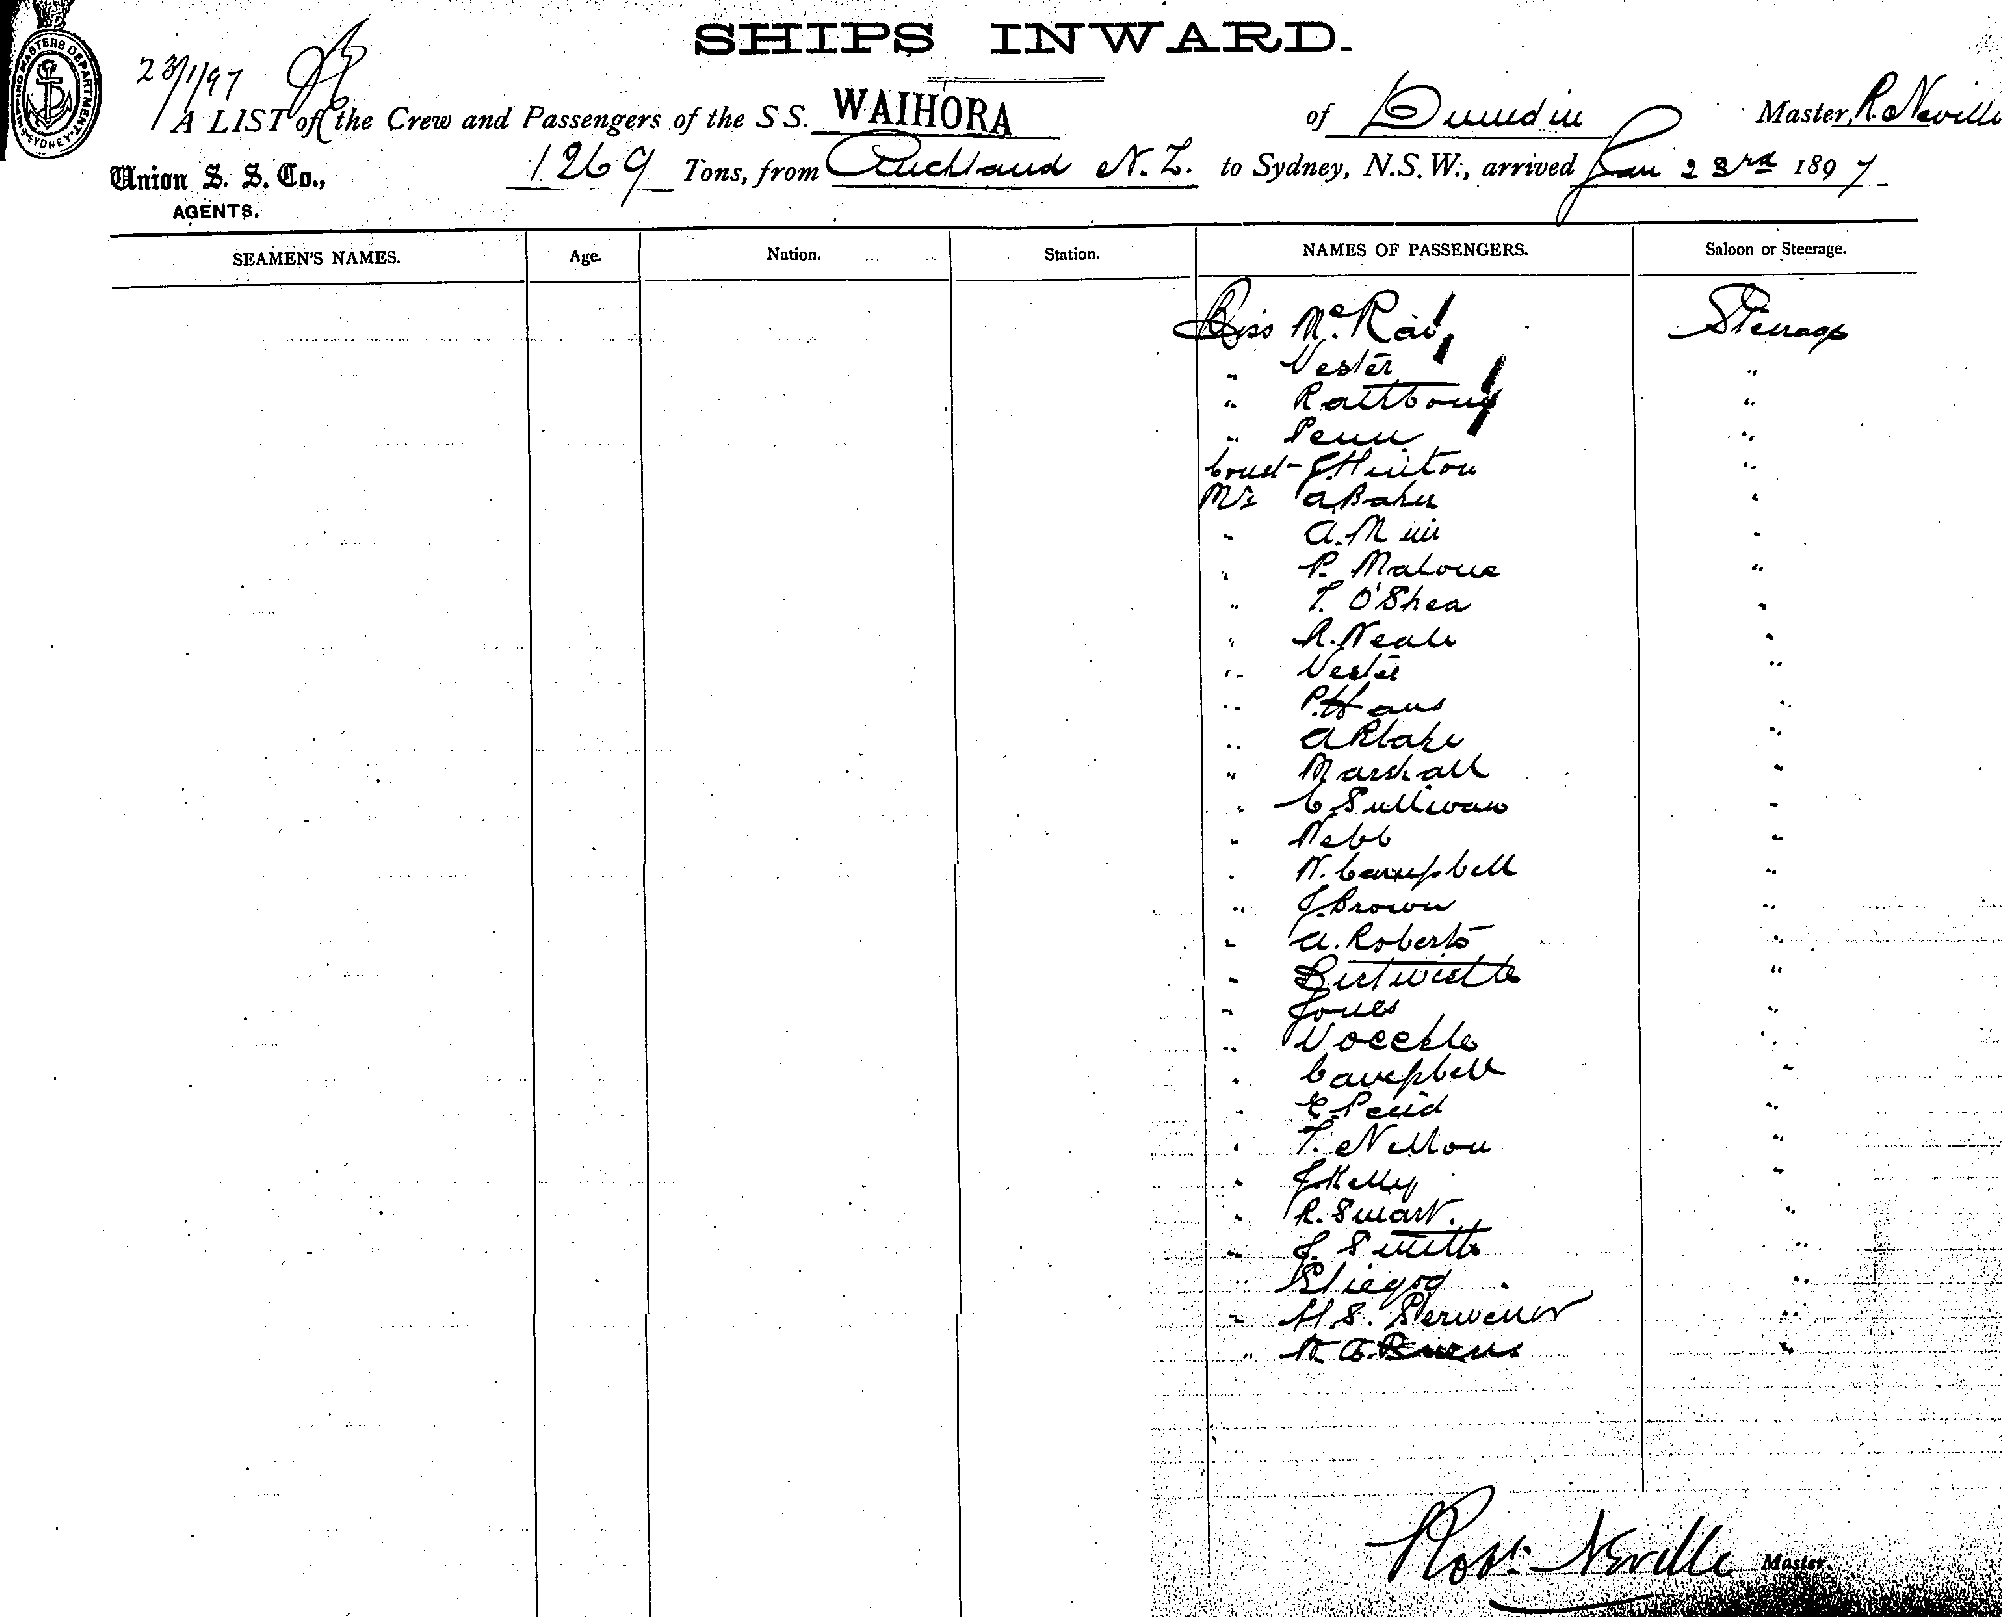 SHIPS INWARD.
23/1/97
A LIST of the Crew and Passengers of the S S. WAIHORA of Dunedin Master, R. Neville
Union S. S. Co., 1269 Tons, from Auckland N. Z. to Sydney, N.S.W., arrived Jan 23rd 1897
AGENTS.
SEAMEN'S NAMES. Age. Nation. Station. NAMES OF PASSENGERS. Saloon or Steerage.
Miss McRae Steerage
" Vester "
" Rathbone "
" Penn "
J. Hinton "
Mr A Baker "
" A. Muir "
" P. Malone "
" T. O'Shea "
" R. Neale "
" Vester "
" "
" A Blake "
" Marshall "
" C Sullivan "
" Webb "
" N. Campbell "
" J. Brown "
" A. Roberts "
" Birtwistle "
" Jones "
" "
" Campbell "
" "
" T. "
" J Kelly "
" R. Smart. "
" J. Smith "
" "
" H S. "
" "
Robt. Neville Master.